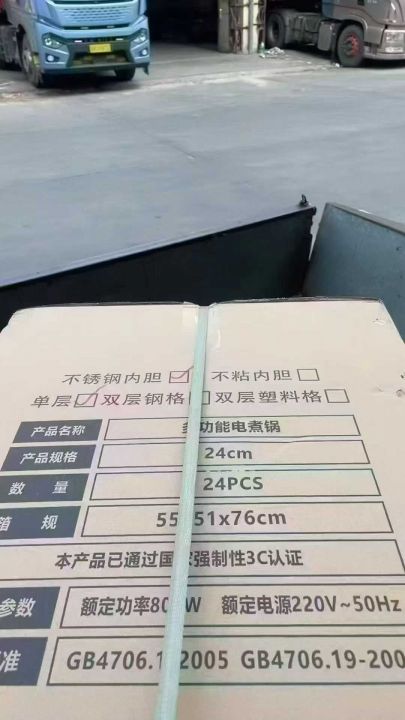 不锈钢内胆☑ 不粘内胆☐
单层☑双层钢格☐双层塑料格☐
产品名称 多功能电煮锅
产品规格 24cm
数 量 24PCS
箱 规 55 51x76cm
本产品已通过国家强制性3C认证
参数 额定功率80 W 额定电源220V~50Hz
准 GB4706.1 2005 GB4706.19-200